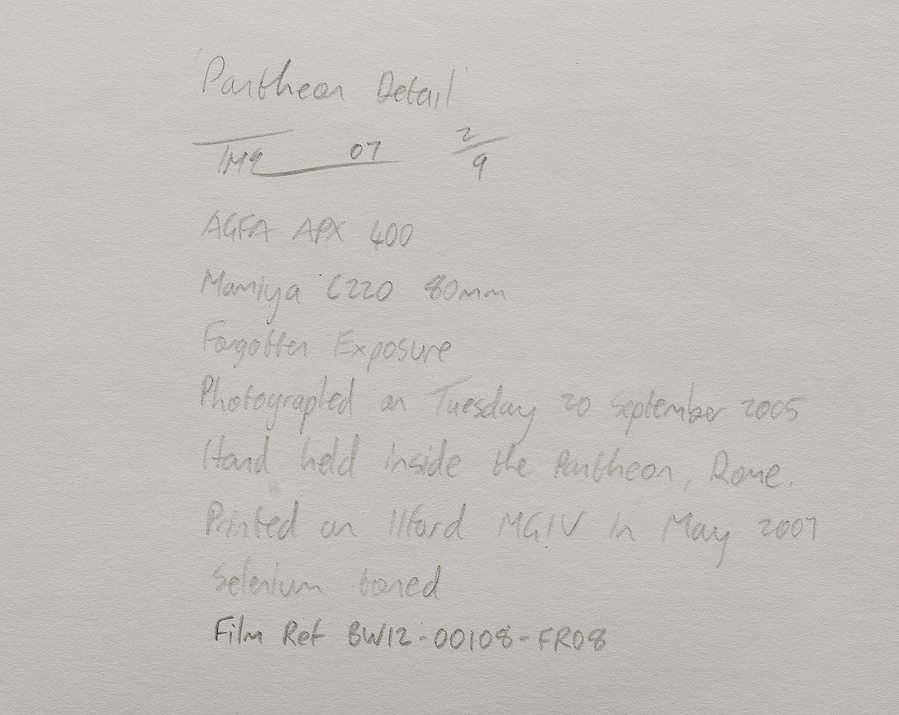 'Pantheon Detail'
07 2/9
AGFA APX 400
Mamiya C220 80mm
Forgotten Exposure
Photographed on Tuesday 20 September 2005
Hand held inside the Pantheon, Rome.
Printed on Ilford MGIV in May 2007
Selenium toned
Film Ref BW12-00108-FR08